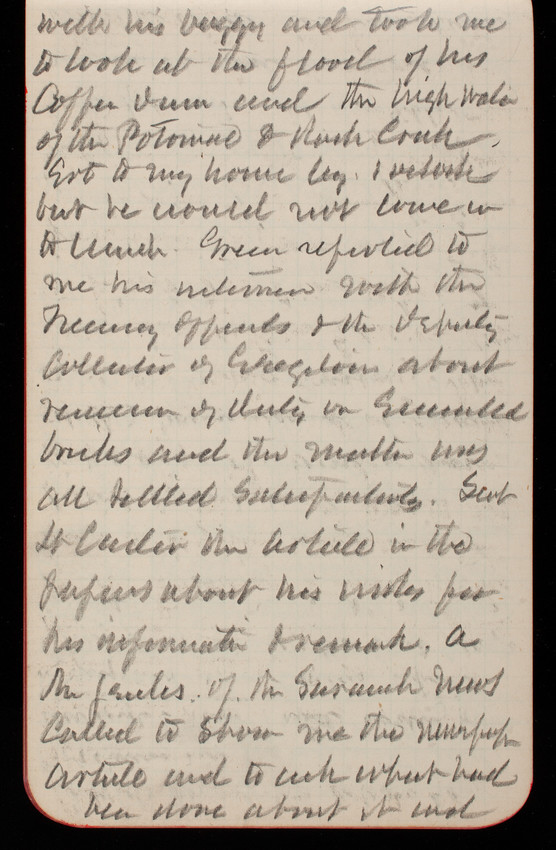 with his buggy and took me
to look at the flood of his
Coffer Dam and the high water
of the Potomac & Rock Creek.
Got to my home by 1 oclock
but he would not come in
to lunch. Green reported to
me his interview with the
Treasury officials & the Deputy
Collector of Georgetown about
remission of duty on Enameled
bricks and the matter was
all settled satisfactorily. Sent
Lt Carter the article in the
papers about his works for
his information & remark. A
Mr of the Savannah News
Called to show me the newspaper
article and to ask what had
been done about it and